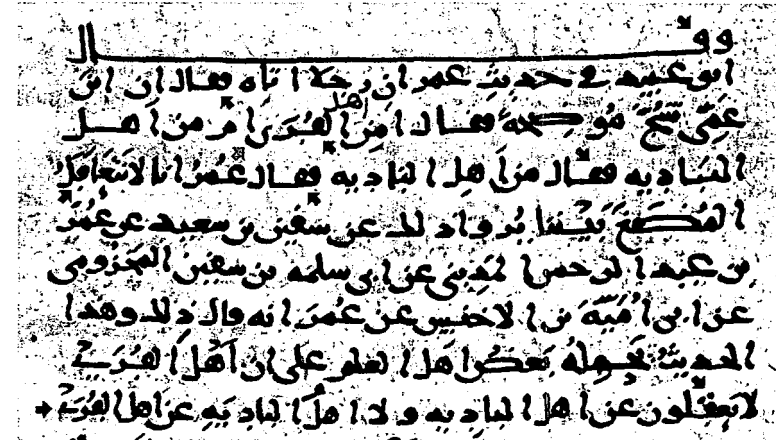 وقال
ابو عبيد في حديث عمر ان رجلا اتاه فقال ان ابن
عمي شج موضحة فقال امن اهل القرى ام من اهل
البادية فقال من اهل البادية فقال عمر انا لا نتعاقل
المضغ بيننا يروا ذلك عن سفين بن سعيد عن عمر
بن عبد الرحمن المديني عن ابي سلمه بن سفين المخزومي
عن ابن امية بن الاخنس عن عمر انه قال ذلك وهذا
الحديث يحمله بعض اهل العلم على ان اهل القرى
لا يعقلون عن اهل البادية ولا اهل البادية عن اهل القرى